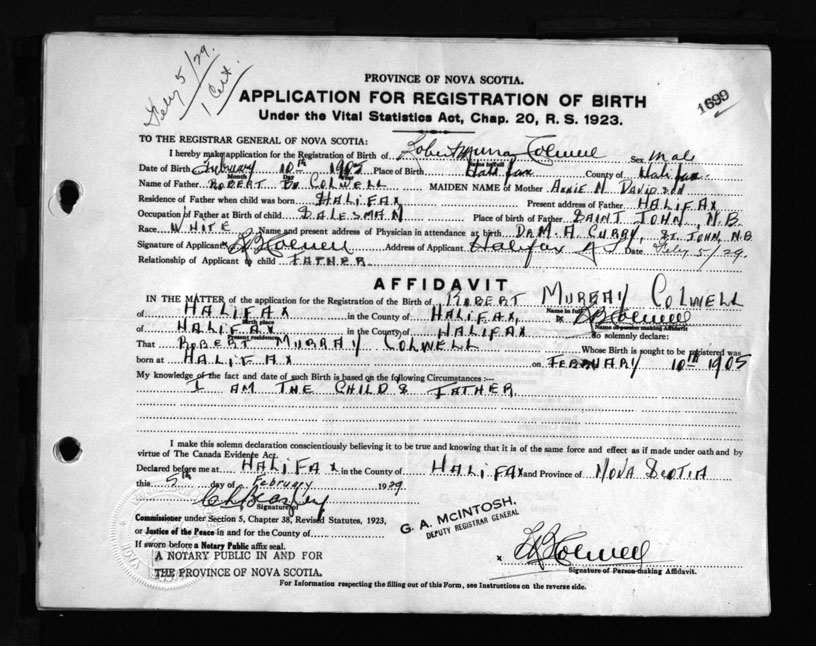 Feby 5/29.
1 Cert.
PROVINCE OF NOVA SCOTIA.
1699
APPLICATION FOR REGISTRATION OF BIRTH
Under the Vital Statistics Act, Chap. 20, R. S. 1923.
TO THE REGISTRAR GENERAL OF NOVA SCOTIA:
I hereby make application for the Registration of Birth of Robert Murray Colwell Sex Male
Name in Full
Date of Birth February 10th 1905 Place of Birth Halifax County of Halifax
Month Day Year
Name of Father ROBERT B. COLWELL MAIDEN NAME of Mother ANNIE N DAVIDSON
Residence of Father when child was born HALIFAX Present address of Father HALIFAX
Occupation of Father at Birth of child SALESMAN Place of birth of Father SAINT JOHN, N.B.
Race WHITE Name and present address of Physician in attendance at birth DR M. A. CURRY, ST. JOHN, N.B.
Signature of Applicant Colwell Address of Applicant Halifax N S Date Feby 5/29.
Relationship of Applicant to child FATHER
AFFIDAVIT
IN THE MATTER of the application for the Registration of the Birth of ROBERT MURRAY COLWELL
Name in full
of HALIFAX in the County of HALIFAX, I, Colwell
Birth place Name of person making Affidavit
of HALIFAX in the County of HALIFAX do solemnly declare:
Present residence
That ROBERT MURRAY COLWELL Whose Birth is sought to be registered was
born at HALIFAX on FEBRUARY 10th 1905
My knowledge of the fact and date of such Birth is based on the following Circumstances:—
I AM THE CHILDS FATHER
I make this solemn declaration conscientiously believing it to be true and knowing that it is of the same force and effect as if made under oath and by
virtue of The Canada Evidente Act.
Declared before me at HALIFAX in the County of HALIFAX and Province of NOVA SCOTIA
this 5th day of February 1929
Signature of
G. A. McINTOSH,
DEPUTY REGISTRAR GENERAL
Commissioner under Section 5, Chapter 38, Revised Statutes, 1923,
or Justice of the Peace in and for the County of
If sworn before a Notary Public affix seal.
A NOTARY PUBLIC IN AND FOR
THE PROVINCE OF NOVA SCOTIA.
x Colwell
Signature of Person making Affidavit.
For Information respecting the filling out of this Form, see Instructions on the reverse side.